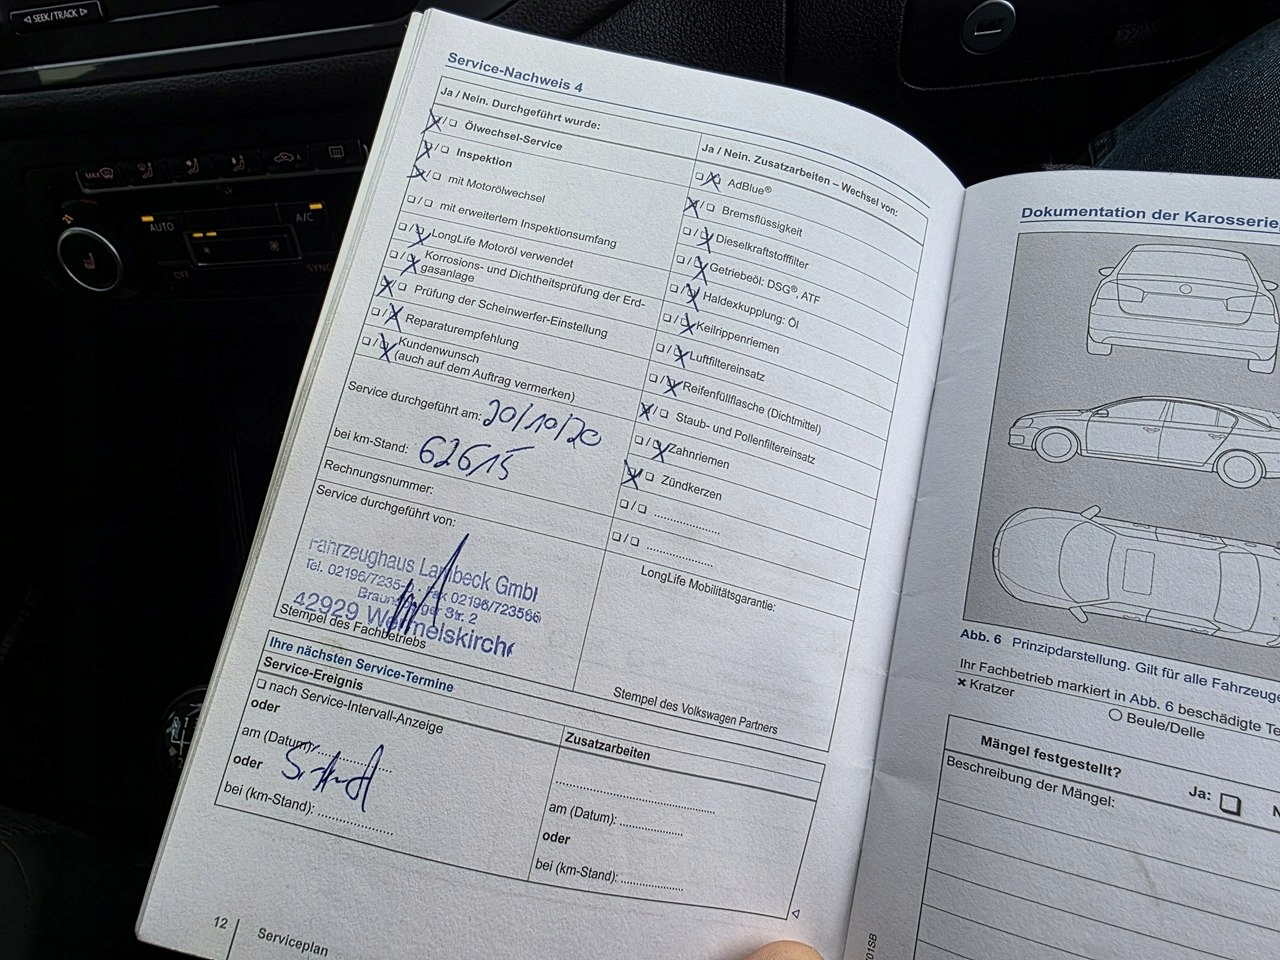 SEEK/TRACK
MAX
AUTO
A/C
OFF
SYNC
Service-Nachweis 4
Ja / Nein. Durchgeführt wurde:
Ölwechsel-Service
Inspektion
mit Motorölwechsel
mit erweitertem Inspektionsumfang
LongLife Motoröl verwendet
Korrosions- und Dichtheitsprüfung der Erd-
gasanlage
Prüfung der Scheinwerfer-Einstellung
Reparaturempfehlung
Kundenwunsch
(auch auf dem Auftrag vermerken)
Service durchgeführt am: 20/10/20
bei km-Stand: 62615
Rechnungsnummer:
Service durchgeführt von:
Fahrzeughaus Lambeck Gmb
Tel. 02196/7235- 02196/723566
Str. 2
42929 Wermelskirche
Stempel des Fachbetriebs
Ja / Nein. Zusatzarbeiten – Wechsel von:
AdBlue®
Bremsflüssigkeit
Dieselkraftstofffilter
Getriebeöl: DSG®, ATF
Haldexkupplung: Öl
Keilrippenriemen
Luftfiltereinsatz
Reifenfüllflasche (Dichtmittel)
Staub- und Pollenfiltereinsatz
Zahnriemen
Zündkerzen
LongLife Mobilitätsgarantie:
Stempel des Volkswagen Partners
Ihre nächsten Service-Termine
Service-Ereignis
nach Service-Intervall-Anzeige
oder
am (Datum):
oder
bei (km-Stand):
Zusatzarbeiten
am (Datum):
oder
bei (km-Stand):
12
Serviceplan
Dokumentation der Karosserie
Abb. 6 Prinzipdarstellung. Gilt für alle Fahrzeuge
Ihr Fachbetrieb markiert in Abb. 6 beschädigte Te
× Kratzer
Beule/Delle
Mängel festgestellt?
Ja:
N
Beschreibung der Mängel:
01SB